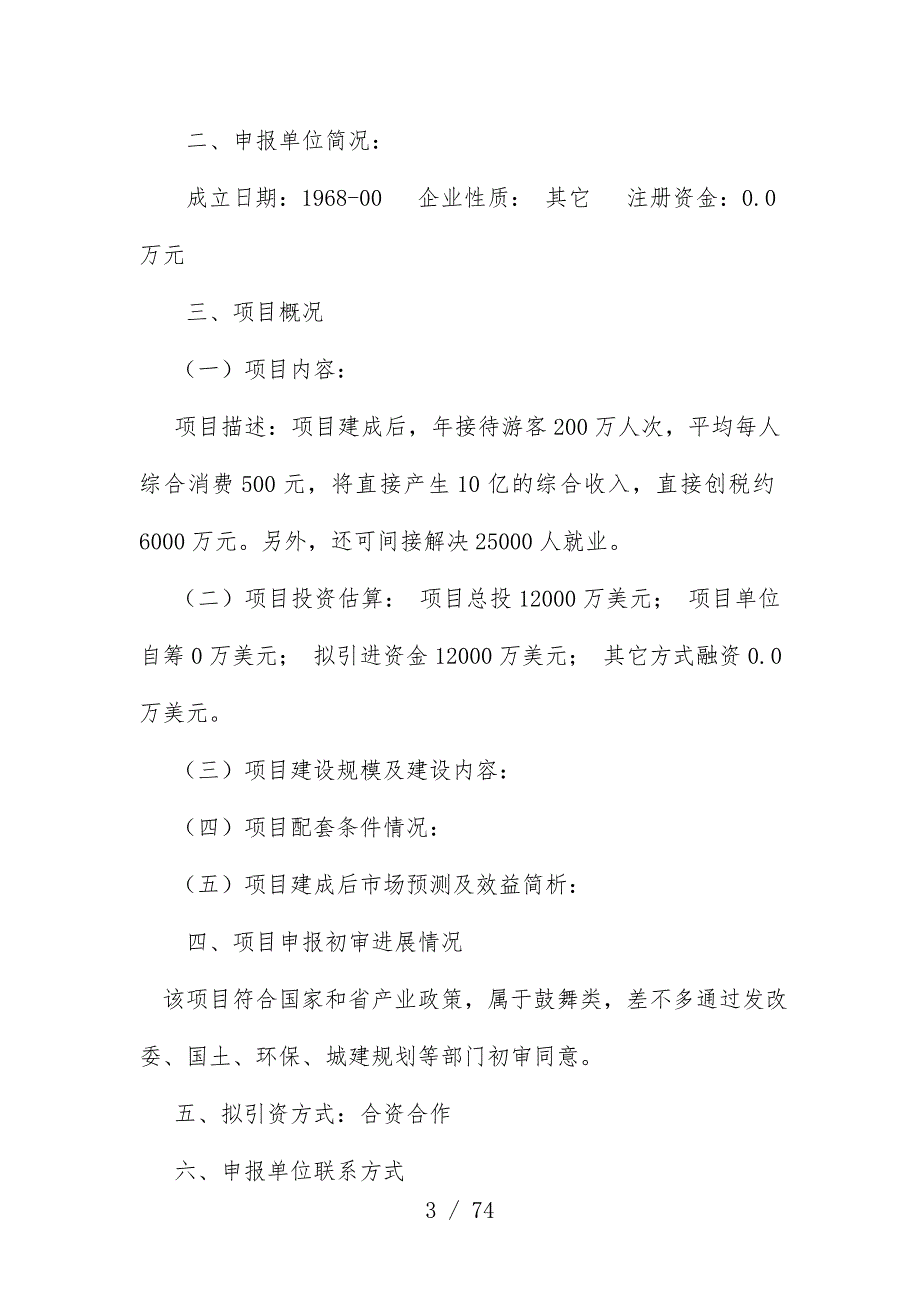 二、申报单位简况：
成立日期：1968-00 企业性质： 其它 注册资金：0.0
万元
三、项目概况
（一）项目内容：
项目描述：项目建成后，年接待游客200万人次，平均每人
综合消费500元，将直接产生10亿的综合收入，直接创税约
6000万元。另外，还可间接解决25000人就业。
（二）项目投资估算： 项目总投12000万美元； 项目单位
自筹0万美元； 拟引进资金12000万美元； 其它方式融资0.0
万美元。
（三）项目建设规模及建设内容：
（四）项目配套条件情况：
（五）项目建成后市场预测及效益简析：
四、项目申报初审进展情况
该项目符合国家和省产业政策，属于鼓舞类，差不多通过发改
委、国土、环保、城建规划等部门初审同意。
五、拟引资方式：合资合作
六、申报单位联系方式
3 / 74